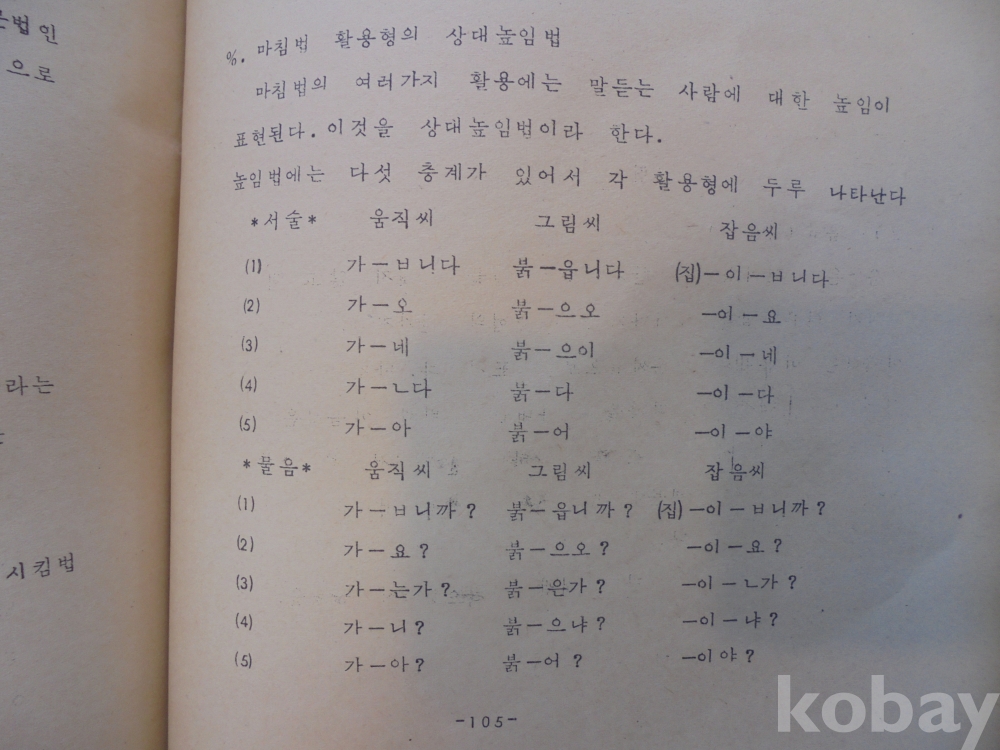 법인
으로
라는
시킴법
%. 마침법 활용형의 상대높임법
마침법의 여러가지 활용에는 말듣는 사람에 대한 높임이
표현된다. 이것을 상대높임법이라 한다.
높임법에는 다섯 층계가 있어서 각 활용형에 두루 나타난다
*서술* 움직씨 그림씨 잡음씨
(1) 가-ㅂ니다 붉-읍니다 (집)-이-ㅂ니다
(2) 가-오 붉-으오 -이-요
(3) 가-네 붉-으이 -이-네
(4) 가-ㄴ다 붉-다 -이-다
(5) 가-아 붉-어 -이-야
*물음* 움직씨 그림씨 잡음씨
(1) 가-ㅂ니까? 붉-읍니까? (집)-이-ㅂ니까?
(2) 가-요? 붉-으오? -이-요?
(3) 가-는가? 붉-은가? -이-ㄴ가?
(4) 가-니? 붉-으냐? -이-냐?
(5) 가-아? 붉-어? -이야?
-105-
kobay